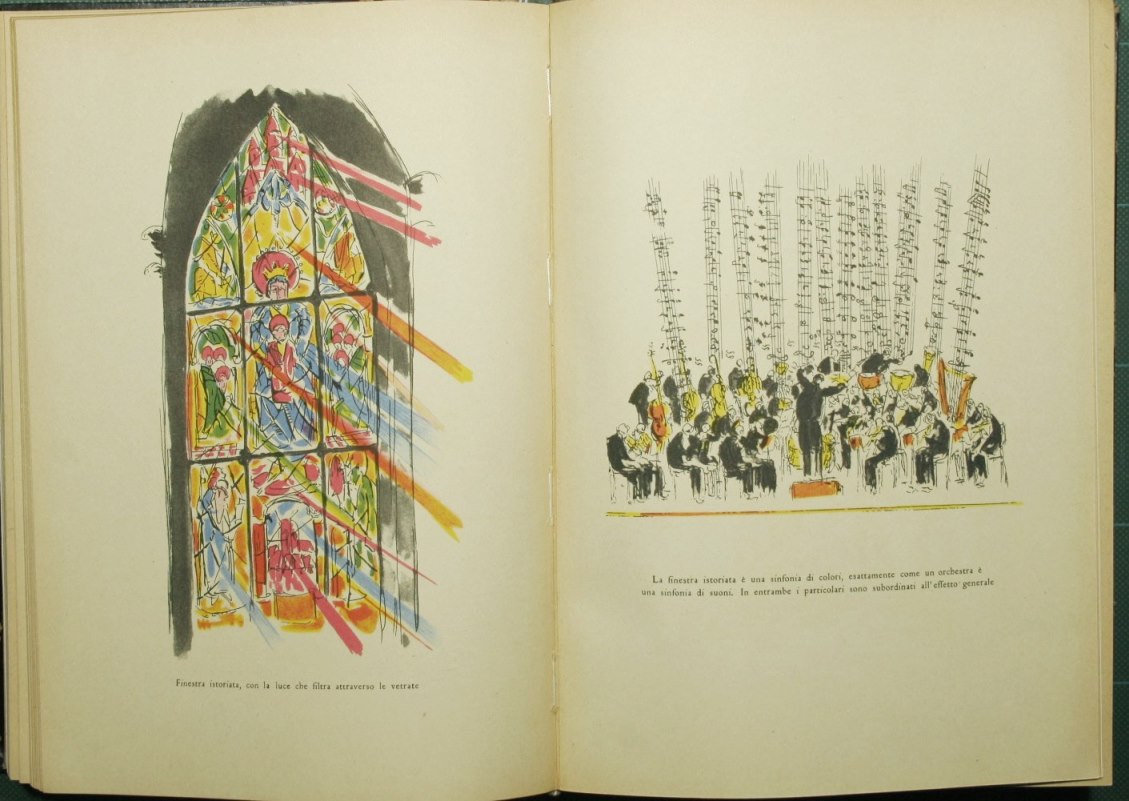 Finestra istoriata, con la luce che filtra attraverso le vetrate
La finestra istoriata è una sinfonia di colori, esattamente come un'orchestra è
una sinfonia di suoni. In entrambe i particolari sono subordinati all'effetto generale